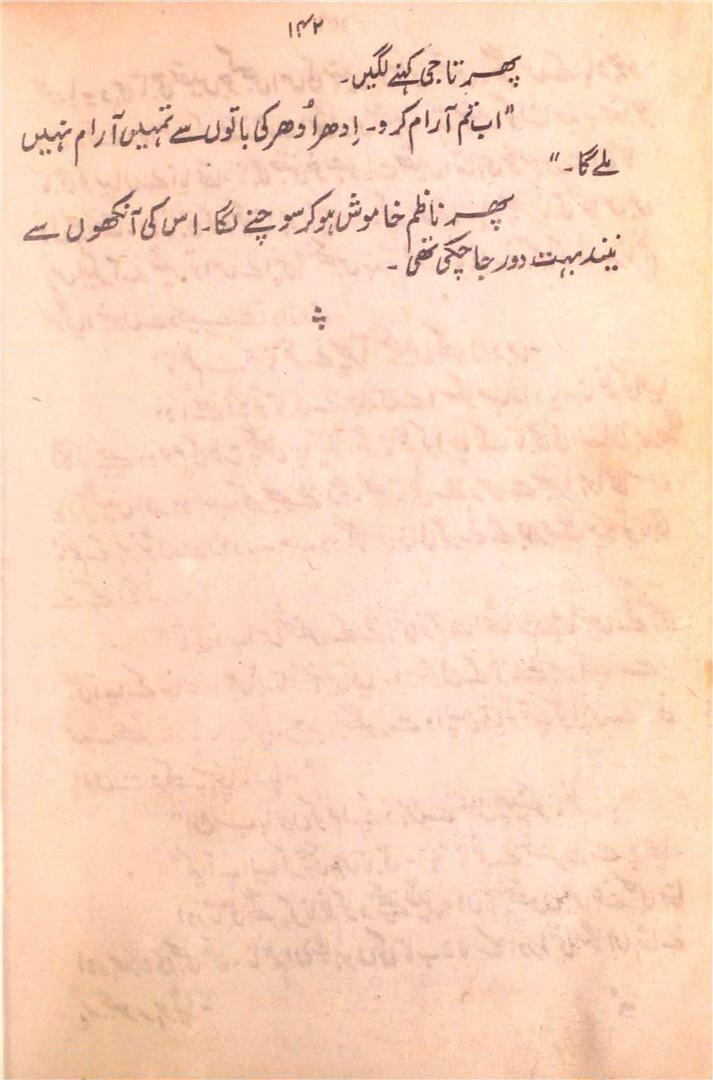 ۱۴۲
پھر تاجی کہنے لگیں۔
"اب تم آرام کرو۔ اِدھر اُدھر کی باتوں سے تمہیں آرام نہیں
ملے گا۔"
پھر ناظم خاموش ہو کر سوچنے لگا۔ اس کی آنکھوں سے
نیند بہت دور جا چکی تھی۔